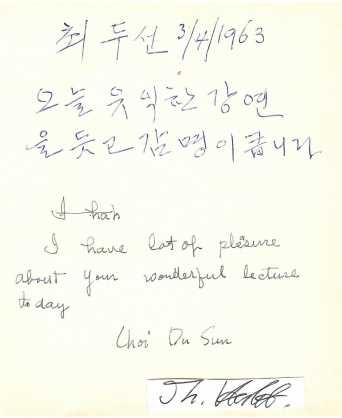 최 두 선 3/4/1963
오늘 유익한 강연
을 듣고 감명이 큽니다
I ha
I have lot of plesure
about your wonderful lecture
today
Choi Du Sun
Th.